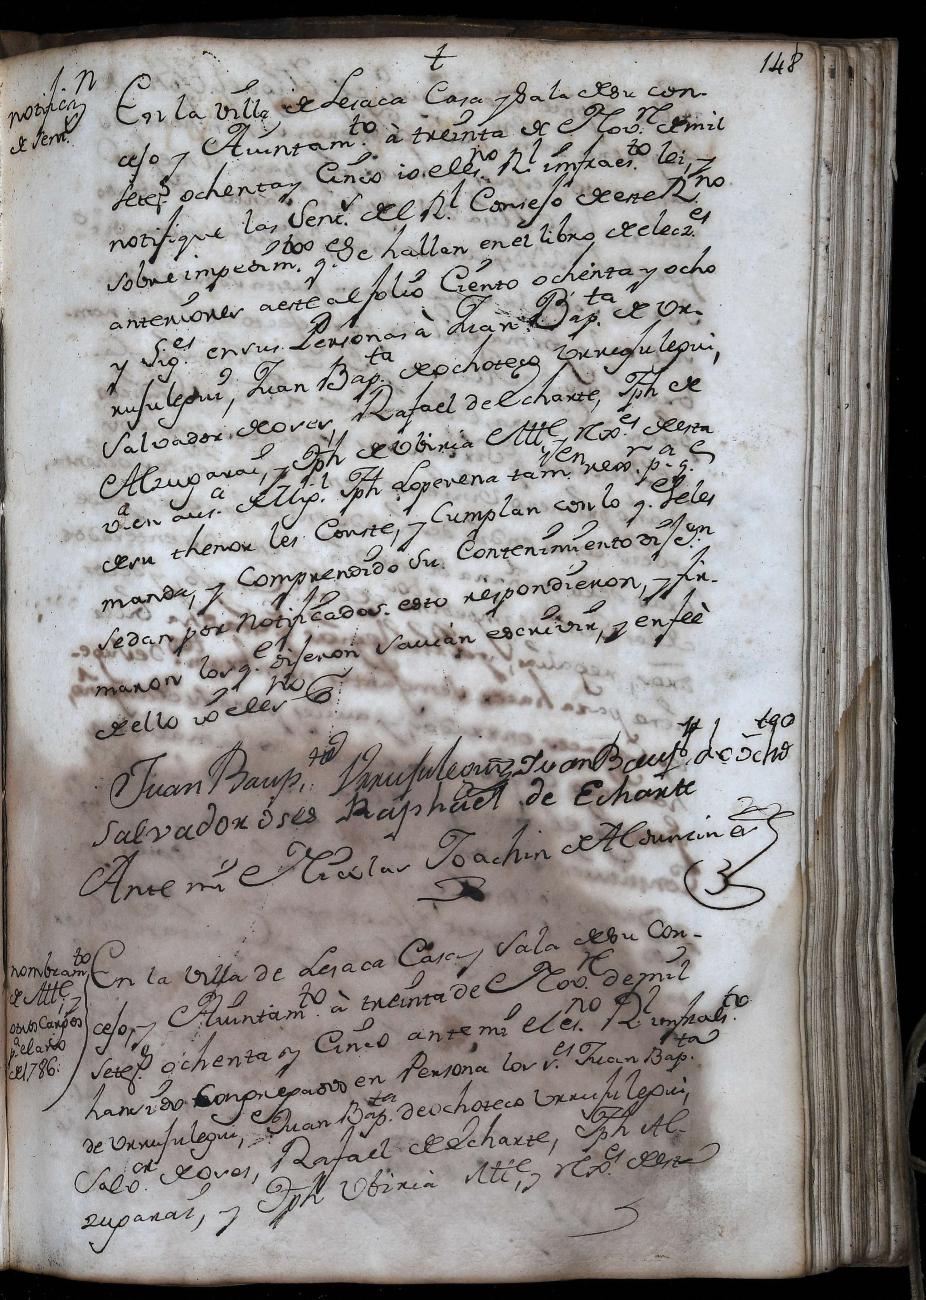 148
notificn
de sent.
En la villa de Lesaca Casa y Sala de su con-
cejo y Aiuntam.to à treinta de Nov.re de mil
setez.s ochenta y Cinco io el es.no R.l infraes.to lei, y
notifique las Sent.s del R.l Consejo de este R.no
sobre impedim.tos q.e se hallan en el libro de elecz.es
anteriores a este al folio Ciento ochenta y ocho
y Sig.es en sus Personas à Juan Bap.ta de Ur-
rusulegui, Juan Bap.ta de ochoteco Urrusulegui,
Salvador de oves, Rafael de Echarte, Jph de
Alzugarai, y Jph de Ubiria Alc.e y rex.es de esta
v.a en aus.a de Mig.l Jph Loperena tam.vien rex.or p.a q.e
de su thenor les Conste, y Cumplan con lo q.e se les
manda, y Comprendido su Contenimiento dijeron
se dan por Notificados. esto respondieron, y fir-
maron los q.e dijeron savian escrivir, y en feè
de ello io el es.no
Juan Baup.ta Urrusulegui Juan Baup.ta de ocho
Salvador oses Raphael de Echarte
Ante mi Nicolas Joachin de Alduncin es.no
nombram.to
de Alc.e y
otros Cargos
p.a el año
de 1786.
En la villa de Lesaca Casa y Sala de su Con-
cejo, y Aiuntam.to à treinta de Nov.re de mil
setez.s ochenta y Cinco ante mi el es.no R.l infraes.to
han sido Congregados en Persona los s.res Juan Bap.ta
de Urrusulegui, Juan Bap.ta de ochoteco Urrusulegui,
Salv.or de oves, Rafael de Echarte, Jph Al-
zugarai, y Jph Ubiria Alc.e, y rex.es de esta